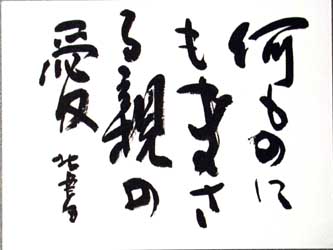 何ものに
もまさ
る親の
愛